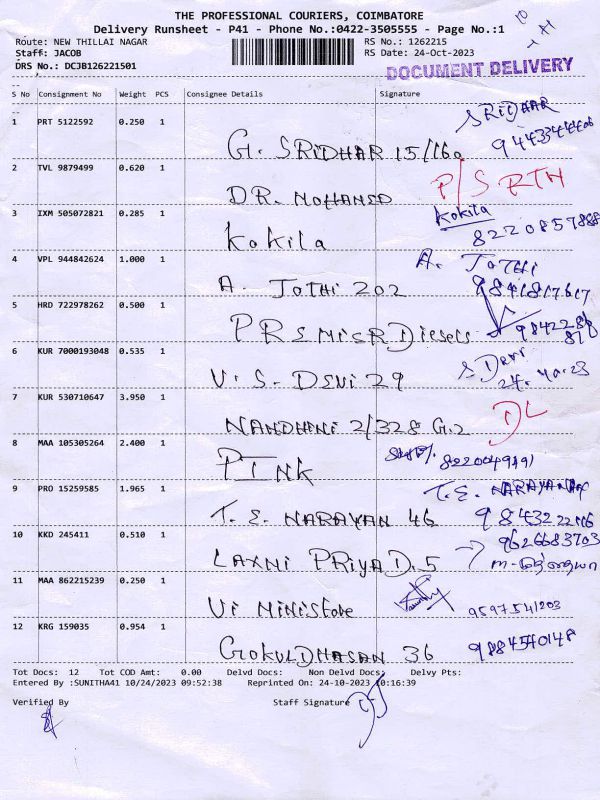 THE PROFESSIONAL COURIERS, COIMBATORE
Delivery Runsheet - P41 - Phone No.:0422-3505555 - Page No.:1
Route: NEW THILLAI NAGAR RS No.: 1262215
Staff: JACOB RS Date: 24-Oct-2023
DRS No.: DCJB126221501 DOCUMENT DELIVERY
S No Consignment No Weight PCS Consignee Details Signature
1 PRT 5122592 0.250 1 SRIDHAR
G. SRIDHAR 15/160
2 TVL 9879499 0.620 1 P/S RTH
DR. MOHANSD
3 IXM 505072821 0.285 1 Kokila
Kokila 8220857888
4 VPL 944842624 1.000 1 A. JOTHI
A. JOTHI 202 9841817617
5 HRD 722978262 0.500 1
PRS MICR Diesels
6 KUR 7000193048 0.535 1 S. Devi
V. S. DEVI 29
7 KUR 530710647 3.950 1 DL
NANDHINI 2/328 G.2
8 MAA 105305264 2.400 1
PINK
9 PRO 15259585 1.965 1 T. E. NARAYANAN
T. E. NARAYAN 46
10 KKD 245411 0.510 1 9626683703
LAXMI PRIYA D. 5
11 MAA 862215239 0.250 1
VI MINISTORE 9597541203
12 KRG 159035 0.954 1
GOKULDHASAN 36
Tot Docs: 12 Tot COD Amt: 0.00 Delvd Docs: Non Delvd Docs: Delvy Pts:
Entered By :SUNITHA41 10/24/2023 09:52:38 Reprinted On: 24-10-2023 10:16:39
Verified By Staff Signature